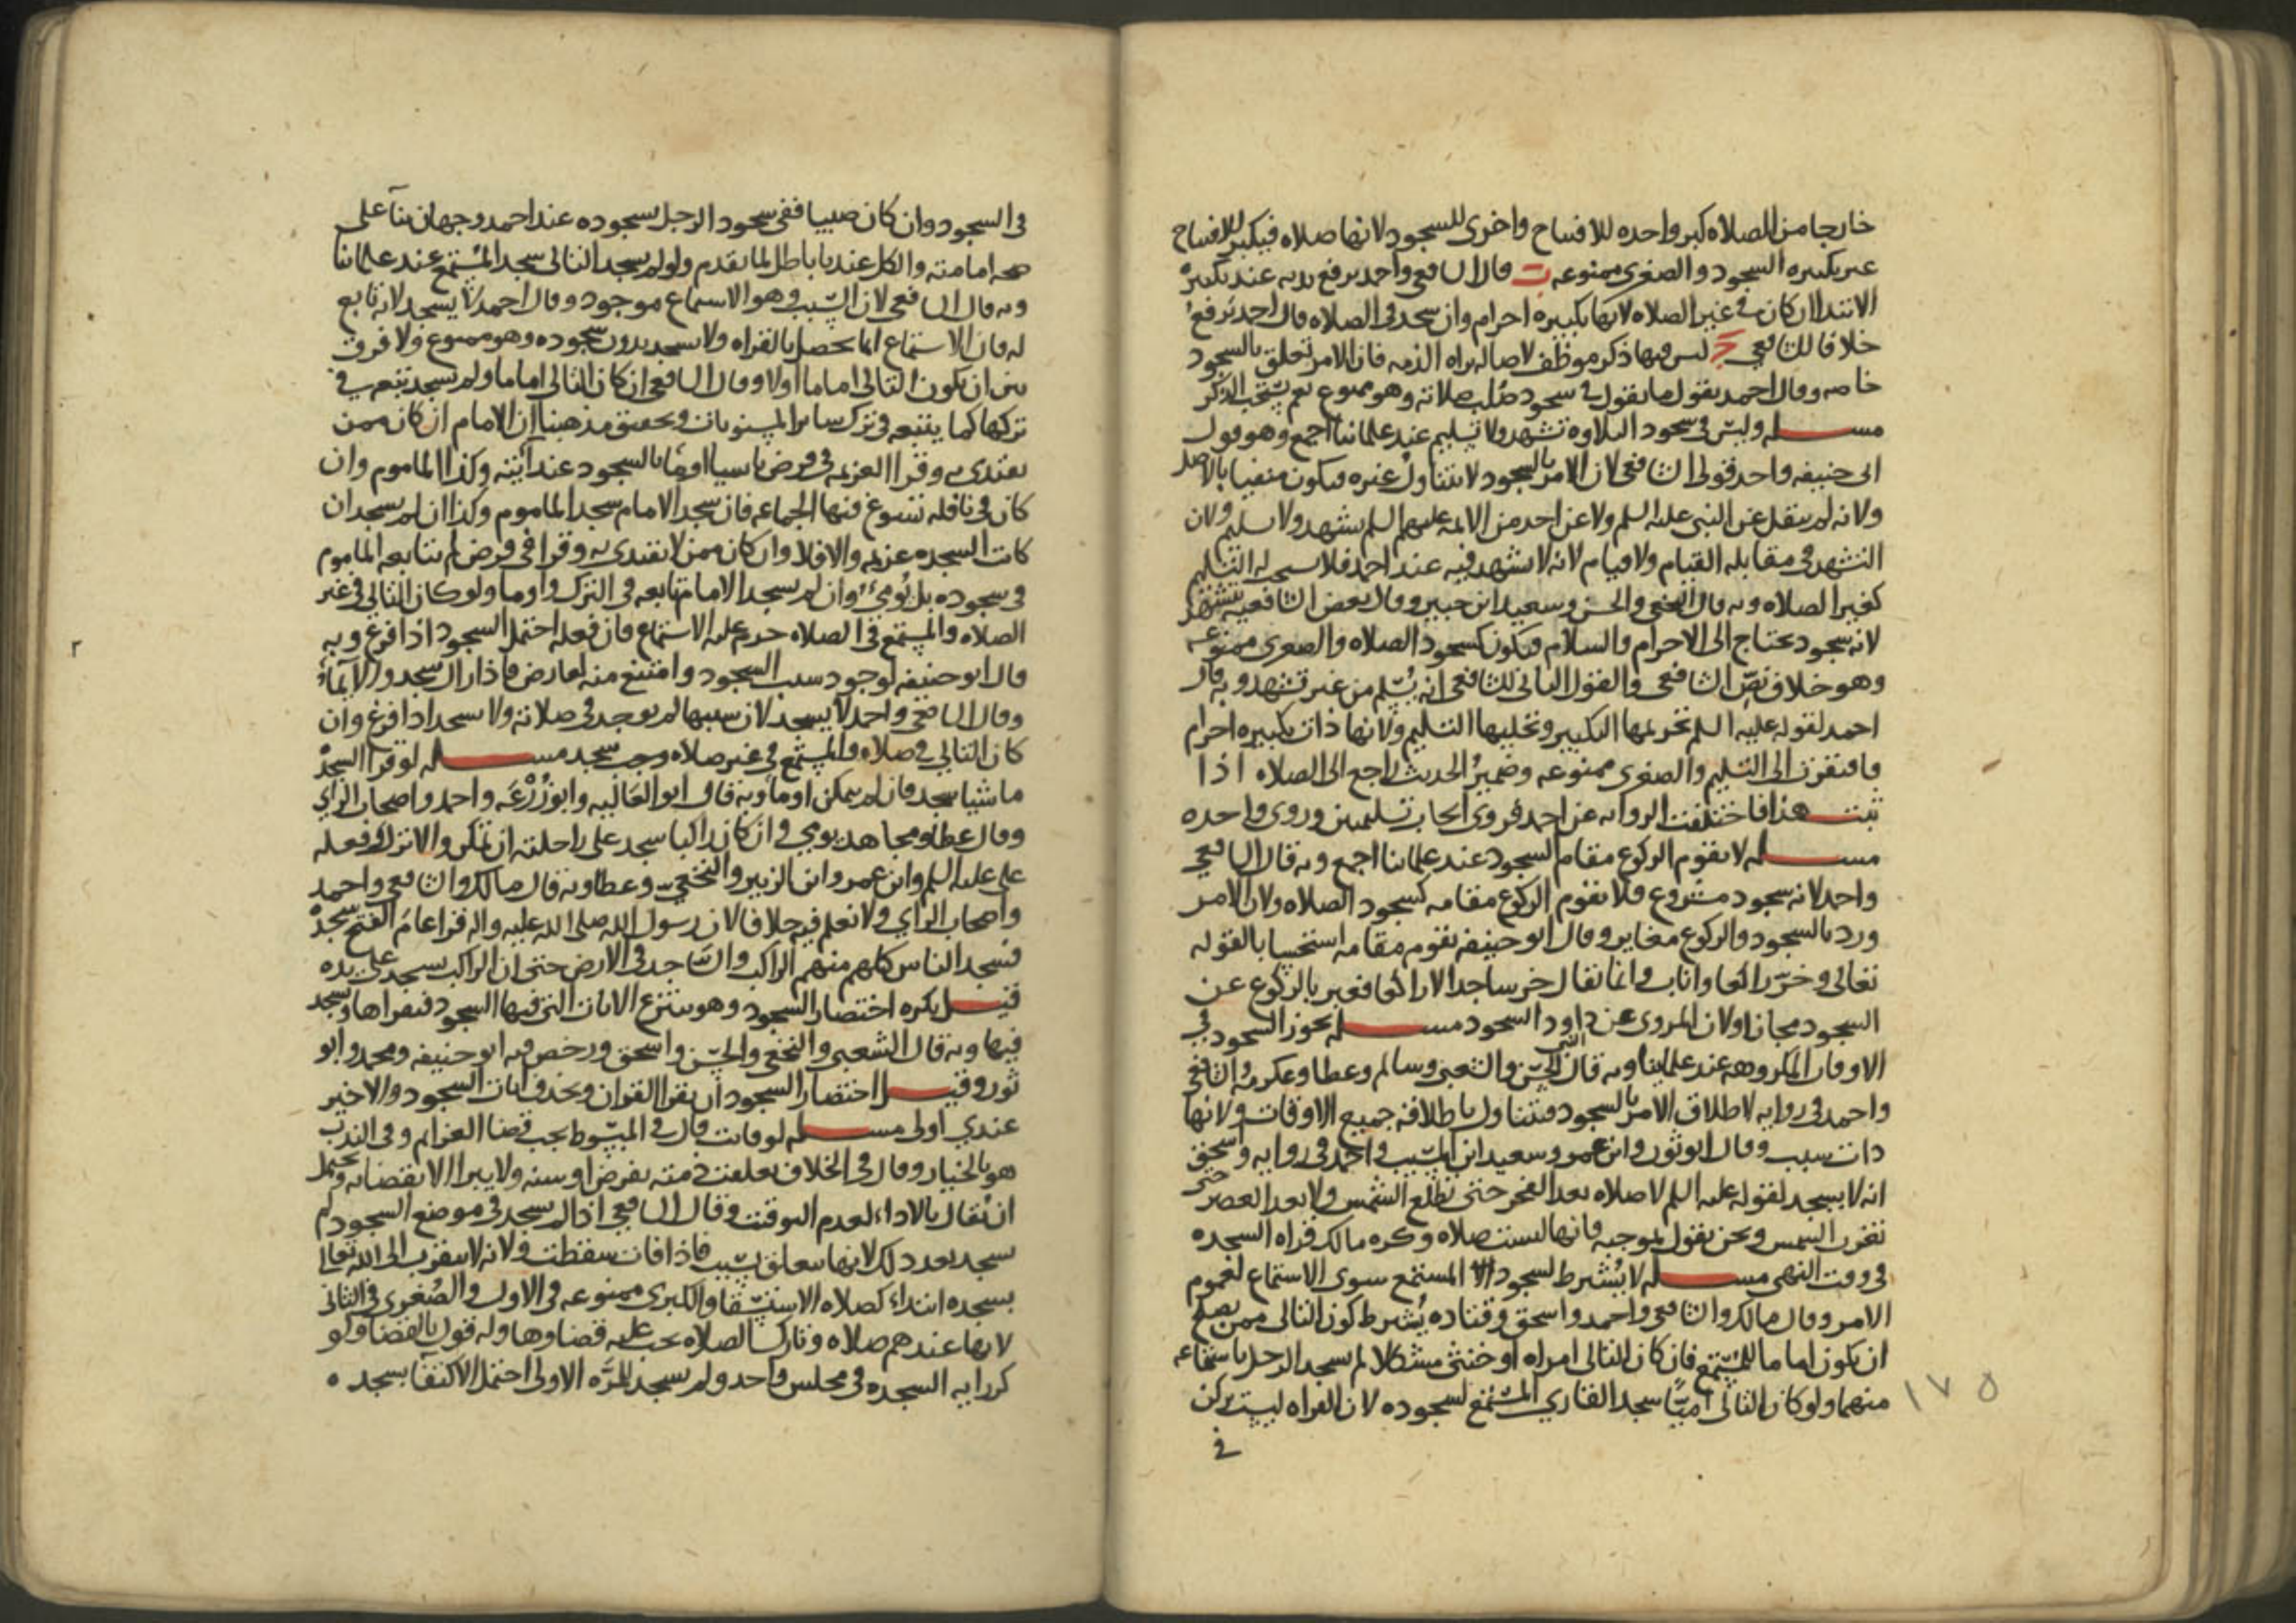 خارجا من الصلاه كبر واحده للافتتاح واخرى للسجود لانها صلاه فيكبر للافتتاح
غير تكبيره السجود والصغرى ممنوعه ب قال الشافعي واحمد يرفع يديه عند تكبيره
الابتدا ان كان في غير الصلاه لانها تكبيره احرام وان سجد في الصلاه قال احمد يرفع
خلافا للشافعي ج ليس فيها ذكر موظف لاصاله براه الذمه فان الامر تعلق بالسجود
خاصه وقال احمد يقول ما يقول في سجود صلب صلاته وهو ممنوع نعم يستحب الذكر
مسله وليس في سجود التلاوه تشهد ولا تسليم عند علمائنا اجمع وهو قول
ابي حنيفه واحد قولي الشافعي لان الامر بالسجود لا يتناول غيره فيكون منفيا بالاصل
ولانه لم ينقل عن النبي عليه السلم ولا عن احد من الائمه عليهم السلم تشهد ولا تسليم ولان
التشهد في مقابله القيام ولا قيام لانه لا تشهد فيه عند احمد فلا يستحب له التسليم
كغير الصلاه وبه قال النخعي والحسن وسعيد ابن جبير وقال بعض الشافعيه يتشهد
لانه سجود يحتاج الى الاحرام والسلام فيكون كسجود الصلاه والصغرى ممنوعه
وهو خلاف نص الشافعي والقول الثاني للشافعي انه يسلم من غير تشهد وبه قال
احمد لقوله عليه السلم تحريمها التكبير وتحليلها التسليم ولانها ذات تكبيره احرام
فافتقرت الى التسليم والصغرى ممنوعه وضمير الحديث راجع الى الصلاه اذا
ثبت هذا فاختلفت الروايه عن احمد فروى ايجاب تسليمتين وروى واحده
مسله لا يقوم الركوع مقام السجود عند علمائنا اجمع وبه قال الشافعي
واحمد لانه سجود مشروع فلا يقوم الركوع مقامه كسجود الصلاه ولان الامر
ورد بالسجود والركوع مغاير وقال ابو حنيفه يقوم مقامه استحسابا لقوله
تعالى وخر راكعا واناب وانما يقال خر ساجدا لا راكعا فعبر بالركوع عن
السجود مجازا ولان المروى عن داود السجود مسله يجوز السجود في
الاوقات المكروهه عند علمائنا وبه قال الحسن والشعبي وسالم وعطا وعكرمه والشافعي
واحمد في روايه لاطلاق الامر بالسجود فيتناول باطلاقه جميع الاوقات ولانها
ذات سبب وقال ابو ثور وابن عمر وسعيد ابن المسيب واحمد في روايه واسحق
انه لا يسجد لقوله عليه السلم لا صلاه بعد الفجر حتى تطلع الشمس ولا بعد العصر حتى
تغرب الشمس ونحن نقول بموجبه فانها ليست صلاه وكره مالك قراه السجده
في وقت النهي مسله لا يشترط لسجود المستمع سوى الاستماع لعموم
الامر وقال مالك والشافعي واحمد واسحق وقتاده يشترط كون التالي ممن يصلح
ان يكون اماما للمستمع فان كان التالي امراه او خنثى مشكلا لم يسجد الرجل باستماعه
منهما ولو كان التالي اميا سجد القاري المستمع لسجوده لان القراه ليست بركن
في
١٧٥
في السجود وان كان صبيا ففي سجود الرجل بسجوده عند احمد وجهان بنآ على
صحه امامته والكل عندنا باطل لما تقدم ولو لم يسجد التالي سجد المستمع عند علمائنا
وبه قال الشافعي لان السبب وهو الاستماع موجود وقال احمد لا يسجد لانه تابع
له فان الاستماع انما يحصل بالقراه ولا يسجد بدون سجوده وهو ممنوع ولا فرق
بين ان يكون التالي اماما اولا وقال الشافعي ان كان التالي اماما ولم يسجد تبعه في
تركها كما يتبعه في ترك ساير المسنونات وتحقيق مذهبنا ان الامام ان كان ممن
يقتدى به وقرا العزيمه في فرض ناسيا اومأ بالسجود عند ايته وكذا الماموم وان
كان في نافله تسوغ فيها الجماعه فان سجد الامام سجد الماموم وكذا ان لم يسجد ان
كانت السجده عزيمه والا فلا وان كان ممن لا يقتدى به وقرا في فرض لم يتابعه الماموم
في سجوده بل يومئ وان لم يسجد الامام تابعه في الترك واوما ولو كان التالي في غير
الصلاه والمستمع في الصلاه حرم عليه الاستماع فان فعله احتمل السجود اذا فرغ وبه
قال ابو حنيفه لوجود سبب السجود وامتنع منه لعارض فاذا زال سجد والايمآء
وقال الشافعي واحمد لا يسجد لان سببها لم يوجد في صلاته ولا يسجد اذا فرغ وان
كان التالي في صلاه والمستمع في غير صلاه وجب سجد مسله لو قرا السجده
ماشيا سجد فان لم يمكن اوما وبه قال ابو العاليه وابو زرعه واحمد واصحاب الراي
وقال عطا ومجاهد يومي وان كان راكبا سجد على راحلته ان تمكن والا نزل وفعله
على عليه السلم وابن عمر وابن الزبير والنخعي وعطا وبه قال مالك والشافعي واحمد
واصحاب الراي ولا نعلم فيه خلافا لان رسول الله صلى الله عليه واله قرا عام الفتح سجده
فسجد الناس كلهم منهم الراكب والساجد في الارض حتى ان الراكب يسجد على يده
فيل يكره اختصار السجود وهو ينتزع الايات التي فيها السجود فيقراها ويسجد
فيها وبه قال الشعبي والنخعي والحسن واسحق ورخص فيه ابو حنيفه ومحمد وابو
ثور وقيل اختصار السجود ان يقرا القران ويحذف ايات السجود والاخير
عندي اولى مسله لو فاتت قال في المبسوط يجب قضا العزايم وفي الندب
هو بالخيار وقال في الخلاف تعلقت ذمته بفرض او سنه ولا يبرا الا بقضائه ويحتمل
ان يقال بالاداء لعدم التوقيت وقال الشافعي اذا لم يسجد في موضع السجود لم
يسجد بعد ذلك لانها تتعلق بسبب فاذا فات سقطت ولانه لا يتقرب الى الله تعالى
بسجده ابتداء كصلاه الاستسقا والكبرى ممنوعه في الاول والصغرى في الثاني
لانها عندهم صلاه وتارك الصلاه يجب عليه قضاوها وله قول بالقضا ولو
كرر ايه السجده في مجلس واحد ولم يسجد للمره الاولى احتمل الاكتفآ بسجده ه
٢